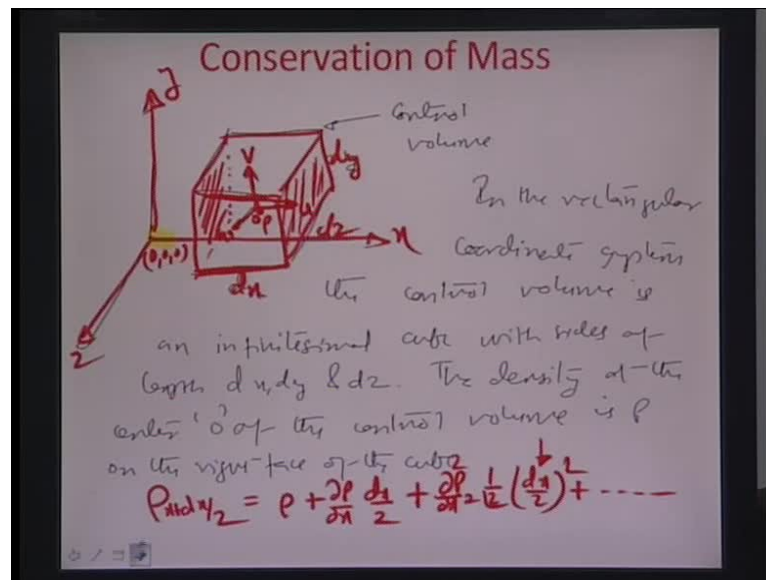 Conservation of Mass
y
control
volume
dy
v
u
o ρ
dz
x
(0,0,0)
dx
z
In the rectangular
coordinate system
the control volume is
an infinitesimal cube with sides of
length dx, dy & dz. The density at the
center 'o' of the control volume is ρ
on the right face of the cube
ρx+dx/2 = ρ + ∂ρ/∂x dx/2 + ∂²ρ/∂x² 1/2 (dx/2)² + ------